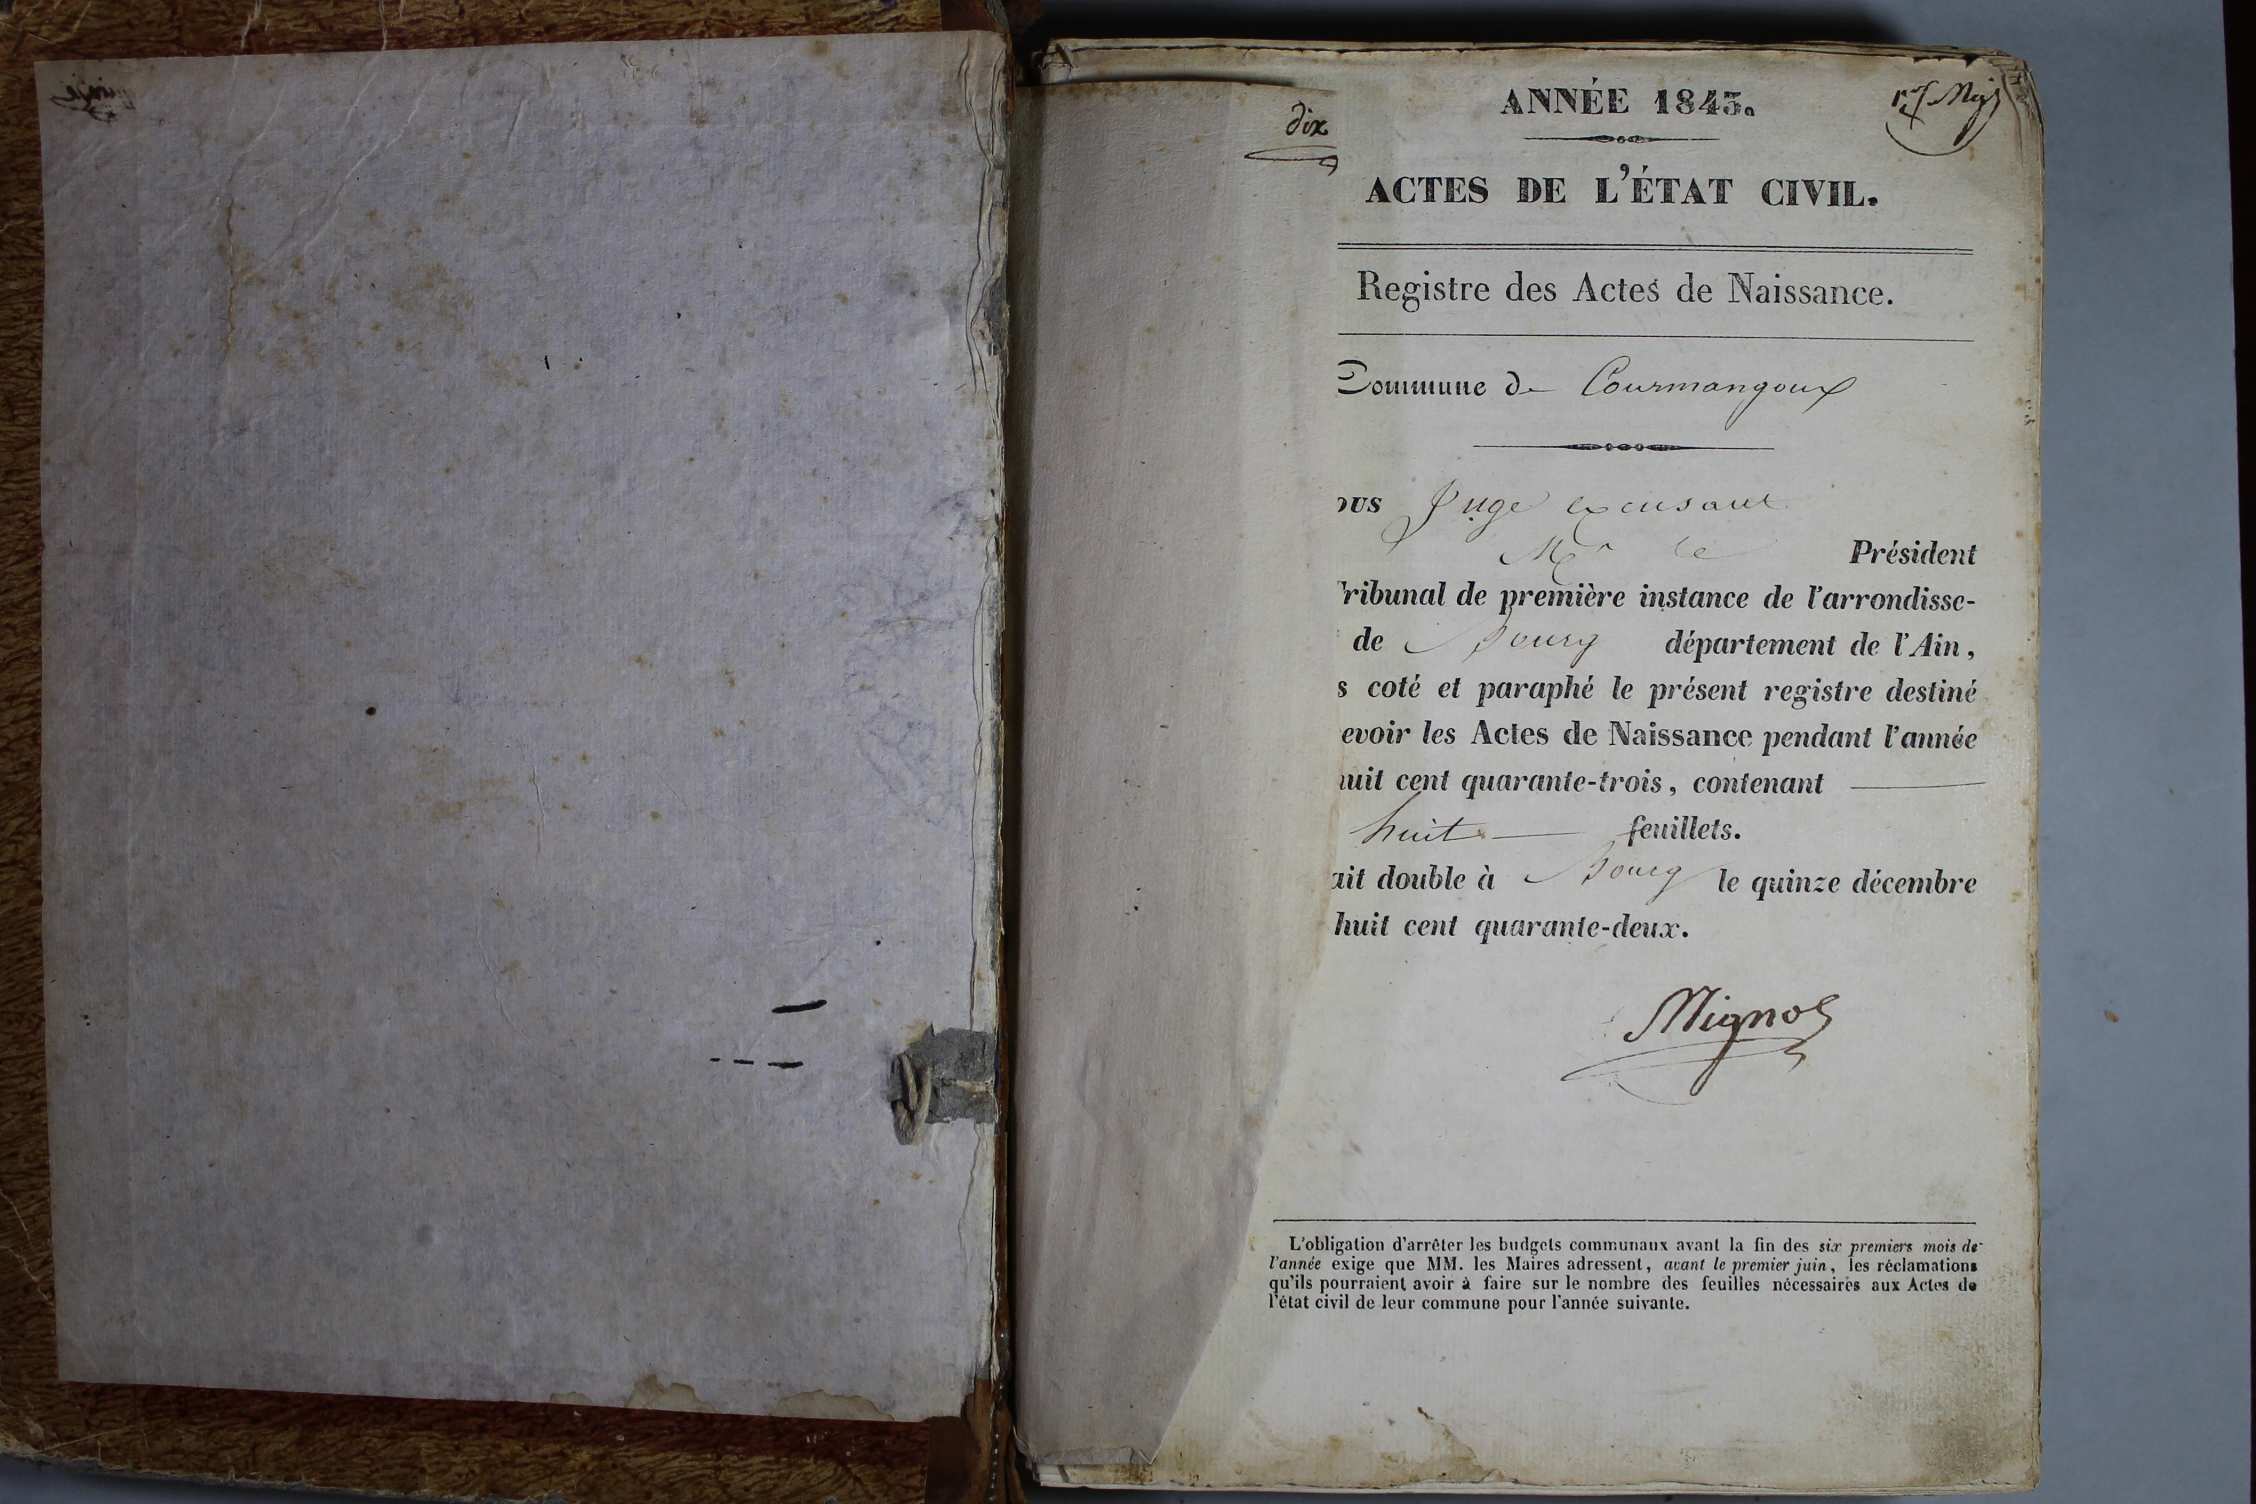 dix
ANNÉE 1843.
ACTES DE L'ÉTAT CIVIL.
Registre des Actes de Naissance.
Commune de Courmangoux
ous Juge
Mr le Président
Tribunal de première instance de l'arrondisse-
de Bourg département de l'Ain,
s coté et paraphé le présent registre destiné
evoir les Actes de Naissance pendant l'année
huit cent quarante-trois, contenant
huit feuillets.
ait double à Bourg le quinze décembre
huit cent quarante-deux.
Mignot
L'obligation d'arrêter les budgets communaux avant la fin des six premiers mois de
l'année exige que MM. les Maires adressent, avant le premier juin, les réclamations
qu'ils pourraient avoir à faire sur le nombre des feuilles nécessaires aux Actes de
l'état civil de leur commune pour l'année suivante.